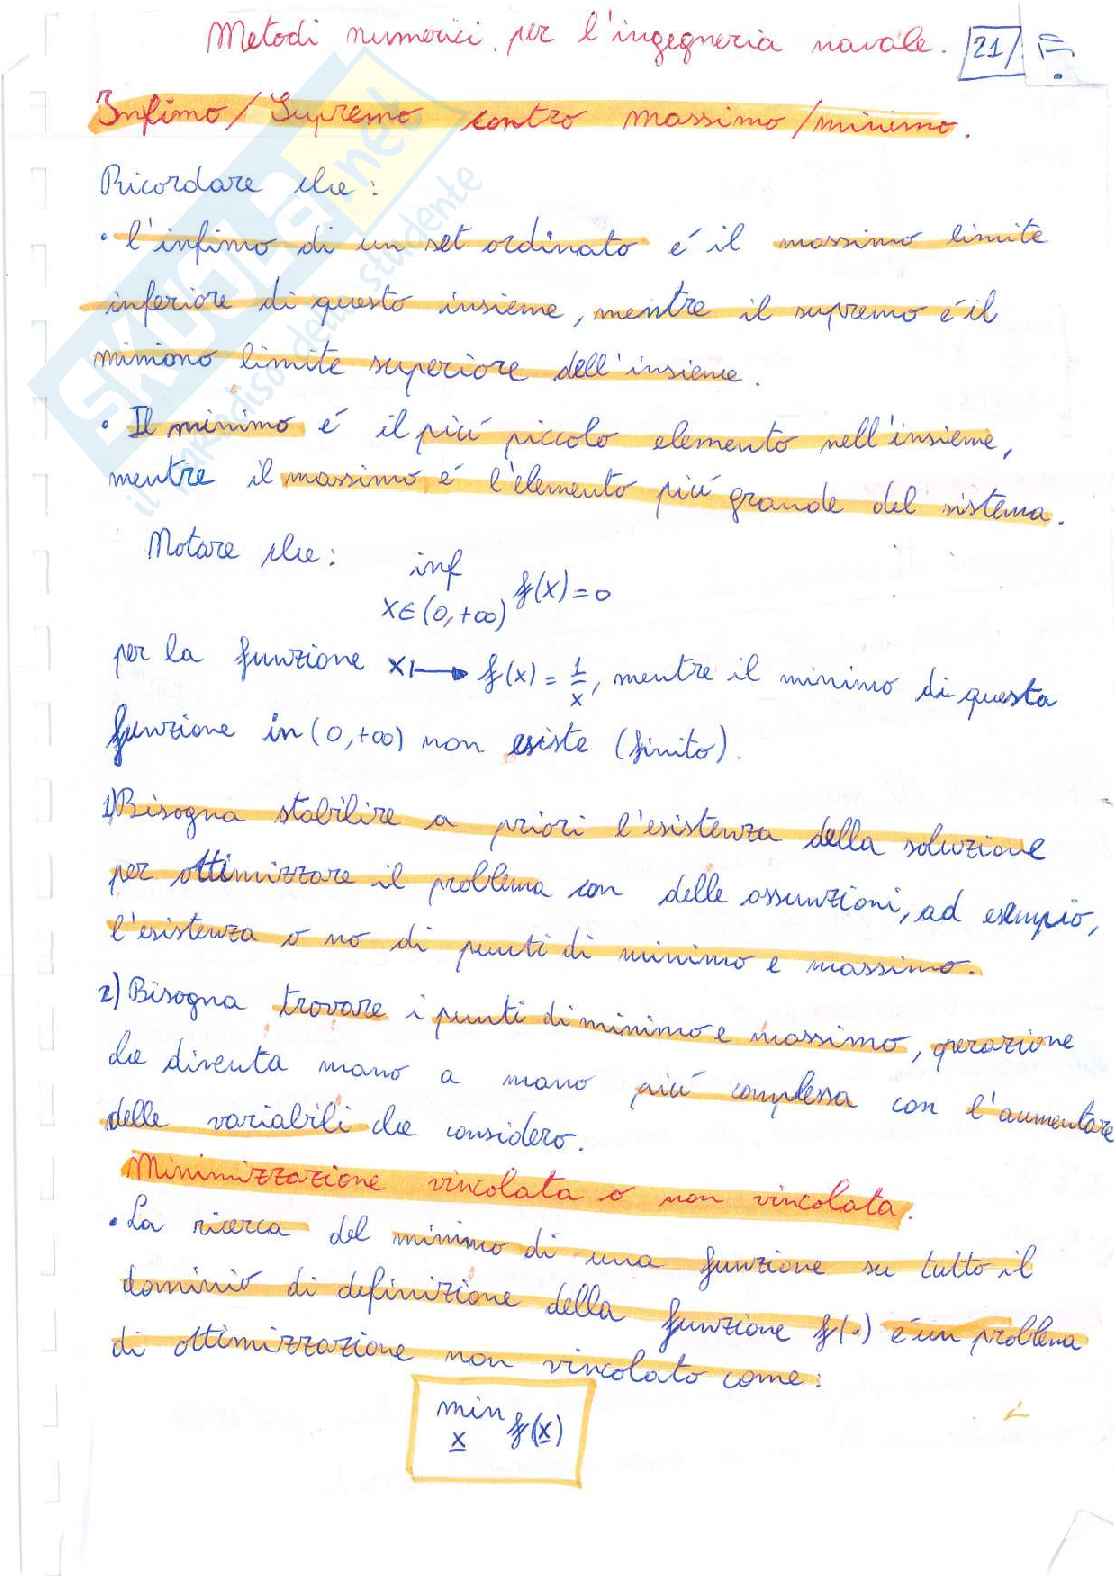 Metodi numerici per l'ingegneria navale. 21
Infimo/Supremo contro massimo/minimo.
Ricordare che:
• l'infimo di un set ordinato é il massimo limite
inferiore di questo insieme, mentre il supremo é il
minimo limite superiore dell'insieme.
• Il minimo é il piú piccolo elemento nell'insieme,
mentre il massimo é l'elemento piú grande del sistema.
Notare che: inf f(x)=0
x∈(0,+∞)
per la funzione x↦f(x)=1/x, mentre il minimo di questa
funzione in (0,+∞) non esiste (finito).
1) Bisogna stabilire a priori l'esistenza della soluzione
per ottimizzare il problema con delle assunzioni, ad esempio,
l'esistenza o no di punti di minimo e massimo.
2) Bisogna trovare i punti di minimo e massimo, operazione
che diventa mano a mano piú complessa con l'aumentare
delle variabili che considero.
Minimizzazione vincolata o non vincolata.
• La ricerca del minimo di una funzione su tutto il
dominio di definizione della funzione f(.) é un problema
di ottimizzazione non vincolato come:
min f(x)
x
SKUOLA.net
il paradiso dello studente